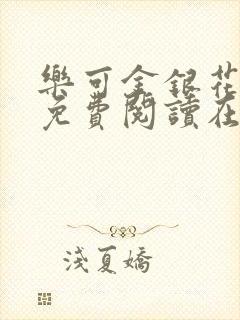 樂可金銀花
免費閱讀在
淺夏嬌